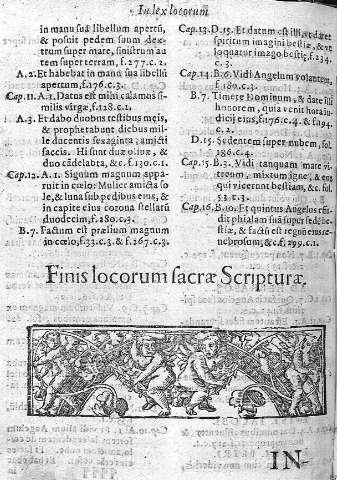 Index locorum
in manu suâ libellum apertũ,
& posuit pedem suum dextrum
super mare, sinistrum autem
super terram, f. 277. c. 2.
A. 2. Et habebat in manu sua libellũ
apertum, f. 176. c. 3.
Cap. 11. A. 1. Datus est mihi calamus similis
virgæ, f. 128. c. 1.
A. 3. Et dabo duobus testibus meis,
& prophetabunt diebus mille
ducentis sexaginta, amicti
saccis. Hi sunt duæ oliuæ, &
duo cãdelabra, & c. f. 130. c. 1.
Cap. 12. A. 1. Signum magnum apparuit
in cœlo: Mulier amicta sole,
& luna sub pedibus eius, &
in capite eius corona stellarũ
duodecim, f. 280. c. 3.
B. 7. Factum est prælium magnum
in cœlo, f. 33. c. 3. & f. 267. c. 3.
Cap. 13. D. 15. Et datum est illi, vt daret
spiritum imagini bestiæ, & vt
loquatur imago bestię, f. 234.
c. 3.
Cap. 14. B. 6. Vidi Angelum volantem,
f. 180. c. 3.
B. 7. Timete Dominum, & date illi
honorem, quia venit hora iudicij
eius, f. 176. c. 4. & f. 194.
c. 2.
D. 15. Sedentem super nubem, fol.
186. c. 4.
Cap. 15. B. 3. Vidi tanquam mare vitreum,
mixtum igne, & eos
qui vicerunt bestiam, & c. fol.
53. c. 3.
Cap. 16. B. 10. Et quintus Angelus effudit
phialam suã super sedẽ bestiæ,
& factũ est regnũ eius tenebrosum,
& c. f. 299. c. 1.
Finis locorum sacræ Scripturæ.
IN-